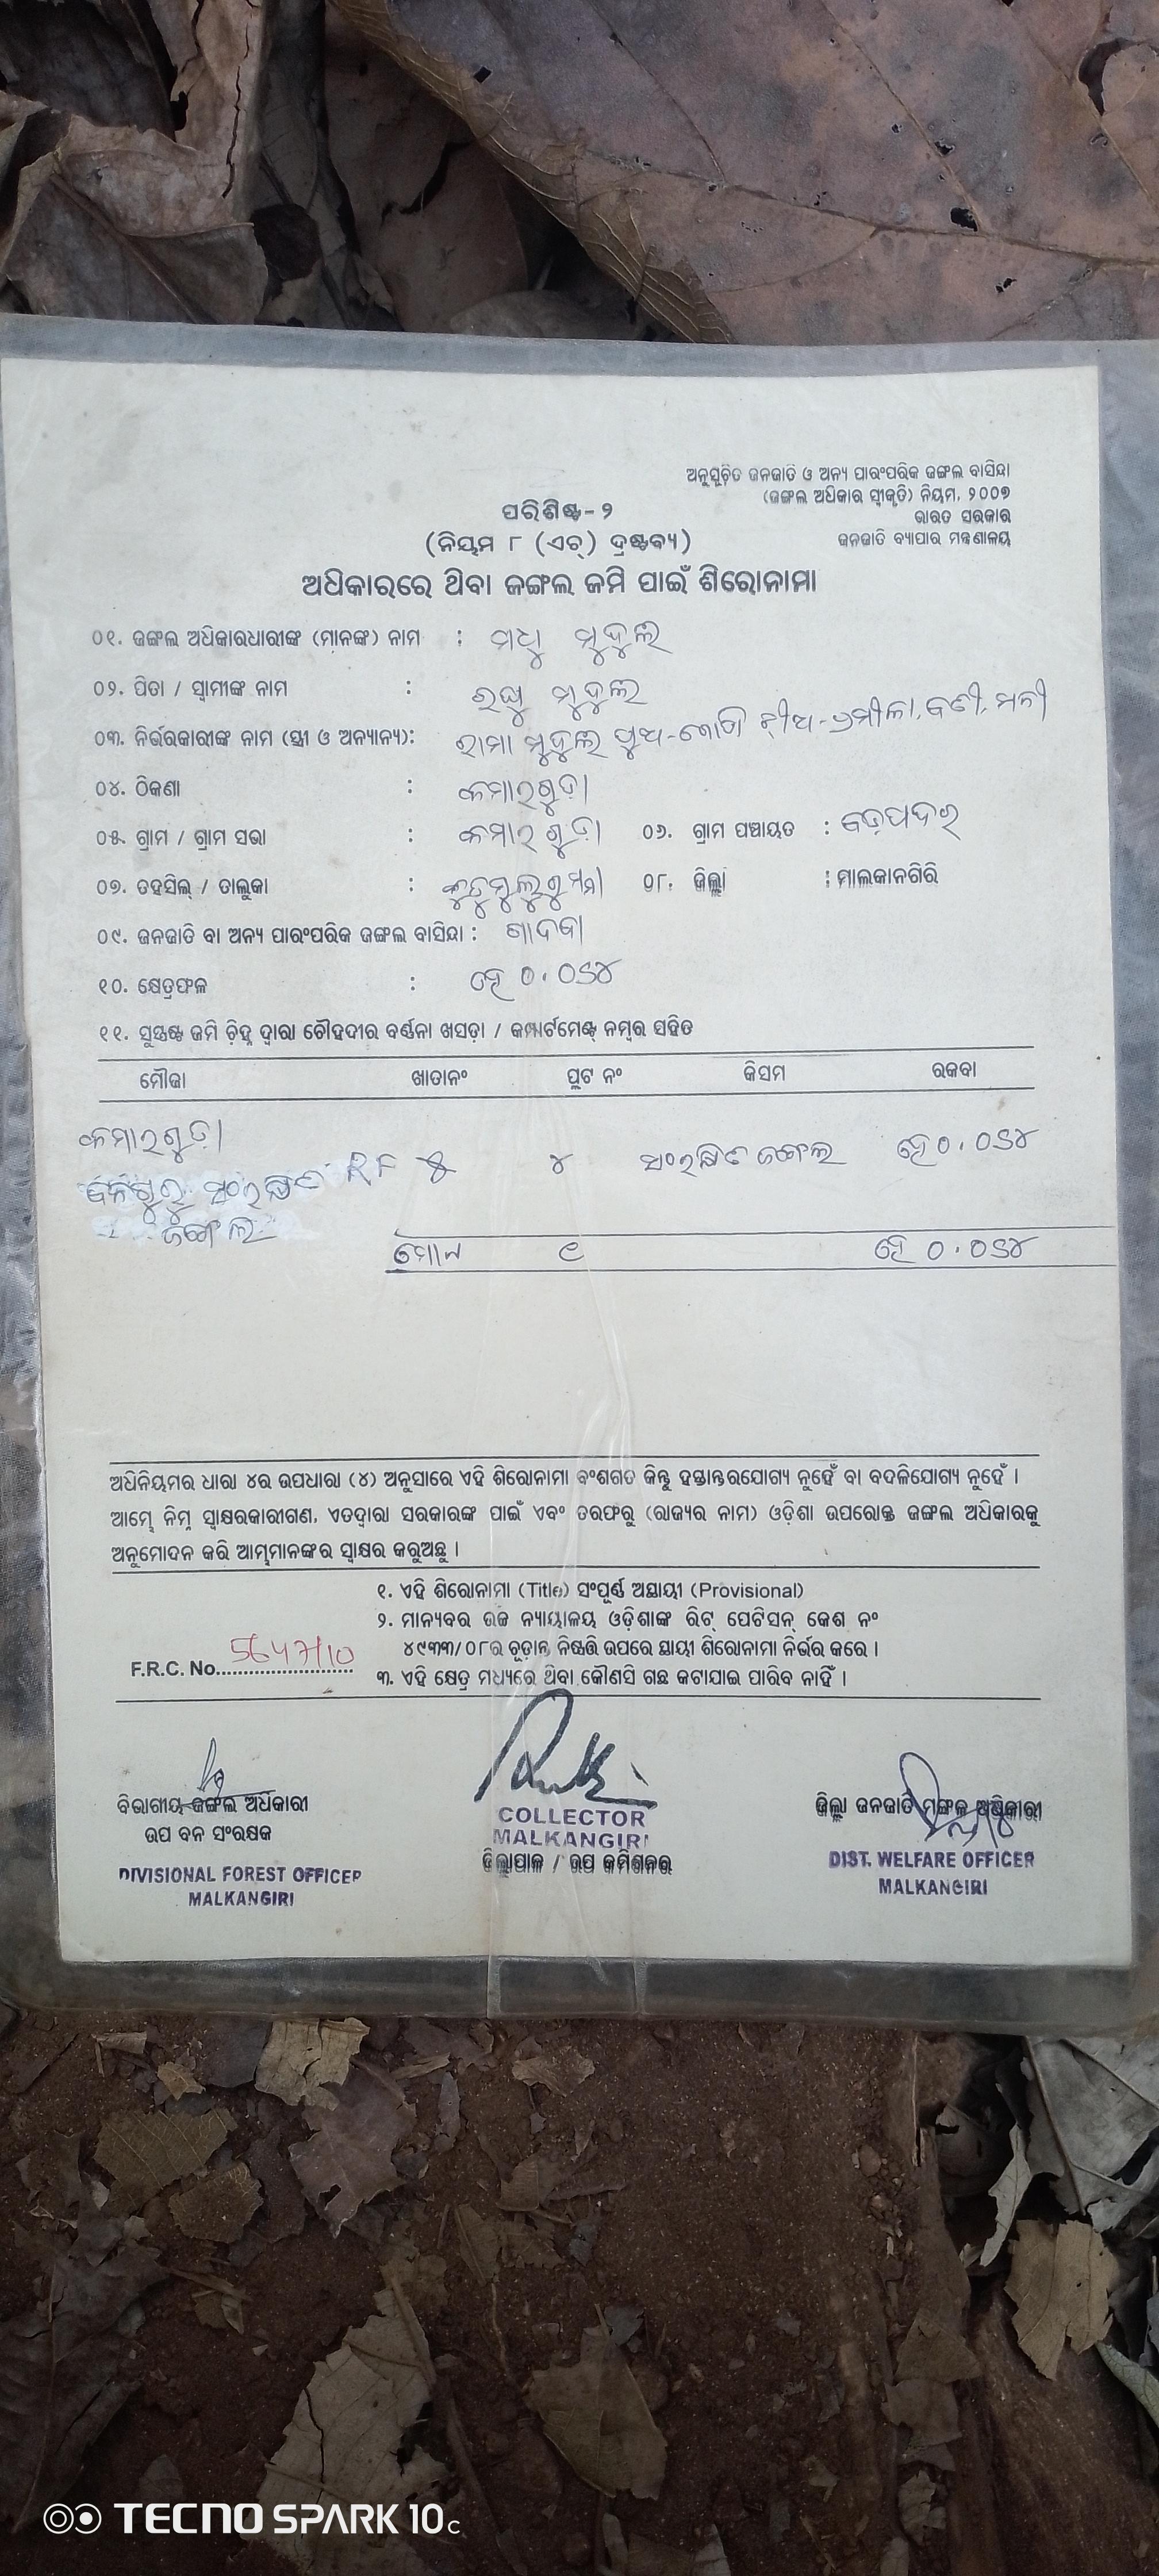 ଅନୁସୂଚିତ ଜନଜାତି ଓ ଅନ୍ୟ ପାରଂପରିକ ଜଙ୍ଗଲ ବାସିନ୍ଦା
(ଜଙ୍ଗଲ ଅଧିକାର ସ୍ୱୀକୃତି) ନିୟମ, ୨୦୦୭
ଭାରତ ସରକାର
ଜନଜାତି ବ୍ୟାପାର ମନ୍ତ୍ରଣାଳୟ
ପରିଶିଷ୍ଟ-୨
(ନିୟମ ୮ (ଏଚ୍) ଦ୍ରଷ୍ଟବ୍ୟ)
ଅଧିକାରରେ ଥିବା ଜଙ୍ଗଲ ଜମି ପାଇଁ ଶିରୋନାମା
୦୧. ଜଙ୍ଗଲ ଅଧିକାରଧାରୀଙ୍କ (ମାନଙ୍କ) ନାମ : ମଧୁ ମୁଦୁଲି
୦୨. ପିତା / ସ୍ୱାମୀଙ୍କ ନାମ : ରଘୁ ମୁଦୁଲି
୦୩. ନିର୍ଭରକାରୀଙ୍କ ନାମ (ସ୍ତ୍ରୀ ଓ ଅନ୍ୟାନ୍ୟ): ରାମା ମୁଦୁଲି ପୁଅ- ଝିଅ-
୦୪. ଠିକଣା : କମାରଗୁଡ଼ା
୦୫. ଗ୍ରାମ / ଗ୍ରାମ ସଭା : କମାରଗୁଡ଼ା ୦୬. ଗ୍ରାମ ପଞ୍ଚାୟତ : ବଡ଼ପଦର
୦୭. ତହସିଲ୍ / ତାଲୁକା : କୁଡୁମୁଲୁଗୁମ୍ମା ୦୮. ଜିଲ୍ଲା : ମାଲକାନଗିରି
୦୯. ଜନଜାତି ବା ଅନ୍ୟ ପାରଂପରିକ ଜଙ୍ଗଲ ବାସିନ୍ଦା : ଗାଦବା
୧୦. କ୍ଷେତ୍ରଫଳ : ହେ ୦.୦୬୪
୧୧. ସୁସ୍ପଷ୍ଟ ଜମି ଚିହ୍ନ ଦ୍ୱାରା ଚୌହଦୀର ବର୍ଣ୍ଣନା ଖସଡ଼ା / କମ୍ପାର୍ଟମେଣ୍ଟ୍ ନମ୍ବର ସହିତ
ମୌଜା ଖାତାନଂ ପ୍ଲଟ ନଂ କିସମ ରକବା
କମାରଗୁଡ଼ା
ସଂରକ୍ଷିତ RF ୪ ସଂରକ୍ଷିତ ଜଙ୍ଗଲ ହେ ୦.୦୬୪
ଜଙ୍ଗଲ
ମୋଟ ୧ ହେ ୦.୦୬୪
ଅଧିନିୟମର ଧାରା ୪ର ଉପଧାରା (୪) ଅନୁସାରେ ଏହି ଶିରୋନାମା ବଂଶଗତ କିନ୍ତୁ ହସ୍ତାନ୍ତରଯୋଗ୍ୟ ନୁହେଁ ବା ବଦଳିଯୋଗ୍ୟ ନୁହେଁ ।
ଆମ୍ଭେ ନିମ୍ନ ସ୍ୱାକ୍ଷରକାରୀଗଣ, ଏତଦ୍ୱାରା ସରକାରଙ୍କ ପାଇଁ ଏବଂ ତରଫରୁ (ରାଜ୍ୟର ନାମ) ଓଡ଼ିଶା ଉପରୋକ୍ତ ଜଙ୍ଗଲ ଅଧିକାରକୁ
ଅନୁମୋଦନ କରି ଆମ୍ଭମାନଙ୍କର ସ୍ୱାକ୍ଷର କରୁଅଛୁ ।
୧. ଏହି ଶିରୋନାମା (Title) ସଂପୂର୍ଣ୍ଣ ଅସ୍ଥାୟୀ (Provisional)
୨. ମାନ୍ୟବର ଉଚ୍ଚ ନ୍ୟାୟାଳୟ ଓଡ଼ିଶାଙ୍କ ରିଟ୍ ପେଟିସନ୍ କେଶ ନଂ
୪୯୩୩/୦୮ର ଚୂଡ଼ାନ୍ତ ନିଷ୍ପତ୍ତି ଉପରେ ସ୍ଥାୟୀ ଶିରୋନାମା ନିର୍ଭର କରେ ।
F.R.C. No. 5647/10
୩. ଏହି କ୍ଷେତ୍ର ମଧ୍ୟରେ ଥିବା କୌଣସି ଗଛ କଟାଯାଇ ପାରିବ ନାହିଁ ।
ବିଭାଗୀୟ ଜଙ୍ଗଲ ଅଧିକାରୀ
ଉପ ବନ ସଂରକ୍ଷକ
DIVISIONAL FOREST OFFICER
MALKANGIRI
COLLECTOR
MALKANGIRI
ଜିଲ୍ଲାପାଳ / ଉପ କମିଶନର
ଜିଲ୍ଲା ଜନଜାତି ମଙ୍ଗଳ ଅଧିକାରୀ
DIST. WELFARE OFFICER
MALKANGIRI
TECNO SPARK 10C